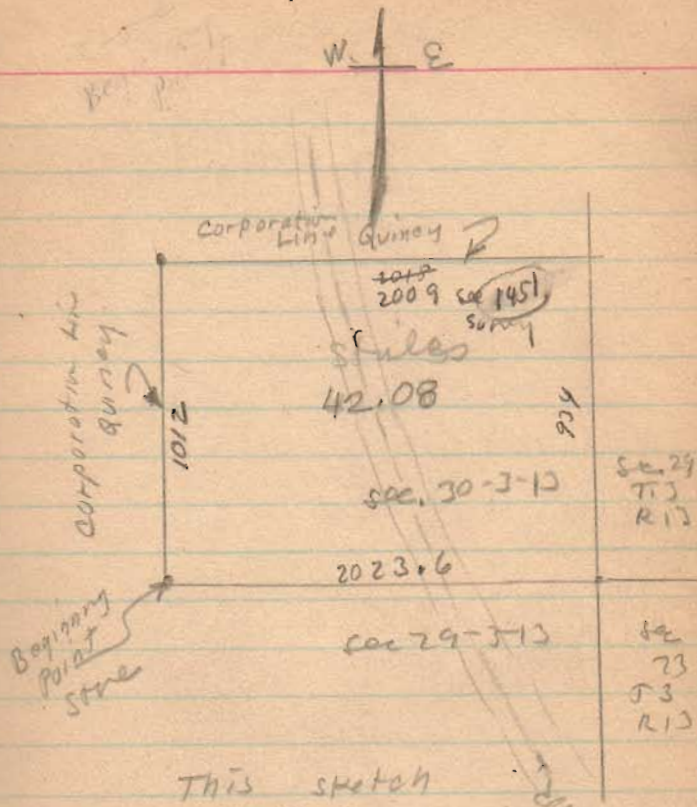 W. E
Corporation
Line Quincy
2019
2009 see 1451
Survey
Stiles
42.08
Corporation Lin
Quincy
1012
sec. 30-3-13
Sec. 29
T.3
R 13
2023.6
Begining
Point
Stone
sec 29-3-13
Sec
T 3
R 13
This sketch